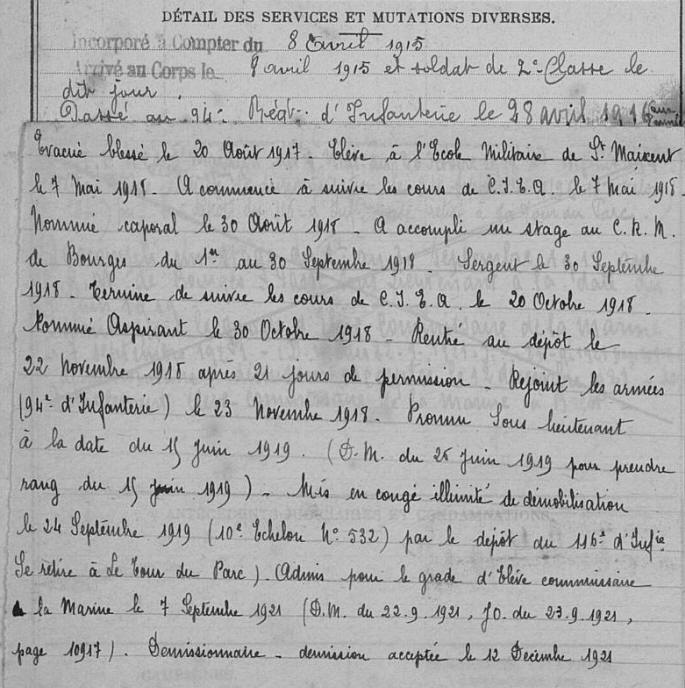 DÉTAIL DES SERVICES ET MUTATIONS DIVERSES.
Incorporé à Compter du 8 Avril 1915
Arrivé au Corps le 9 avril 1915 et soldat de 2e Classe le
dit jour.
Passé au 94e Régt: d'Infanterie le 28 avril 1916
Evacué blessé le 20 Août 1917. Elève à l'Ecole Militaire de St Maixent
le 7 Mai 1918. A commencé à suivre les cours de C.I.E.A. le 7 Mai 1918.
Nommé caporal le 30 Août 1918. A accompli un stage au C.R.M.
de Bourges du 1er au 30 Septembre 1918. Sergent le 30 Septembre
1918. Termine de suivre les cours de C.I.E.A le 20 Octobre 1918.
Nommé Aspirant le 30 Octobre 1918. Rentre au dépôt le
22 Novembre 1918 apres 21 jours de permission. Rejoint les armées
(94e d'Infanterie) le 23 Novembre 1918. Promu Sous lieutenant
à la date du 15 Juin 1919. (D.M. du 26 Juin 1919 pour prendre
rang du 15 Juin 1919). Mis en congé illimité de démobilisation
le 24 Septembre 1919 (10e Echelon No 532) par le dépôt du 116e d'Infie
Se retire à Le Tour du Parc) Admis pour le grade d'Elève commissaire
la Marine le 7 Septembre 1921 (D.M. du 22.9.1921, JO. du 23.9.1921,
page 10917). Demissionnaire - demission acceptée le 12 Décembre 1921